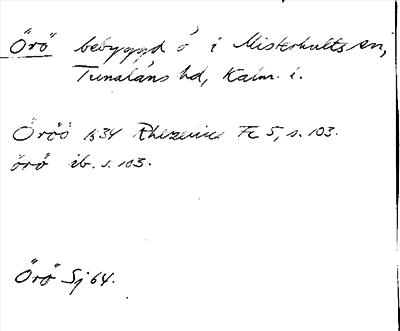 Örö bebyggd ö i Misterhults sn,
Tunaläns hd, Kalm. l.
Öröö 1634 Rhezenius Fc 5, s. 103.
örö ib. s. 103.
Örö Sj 64.